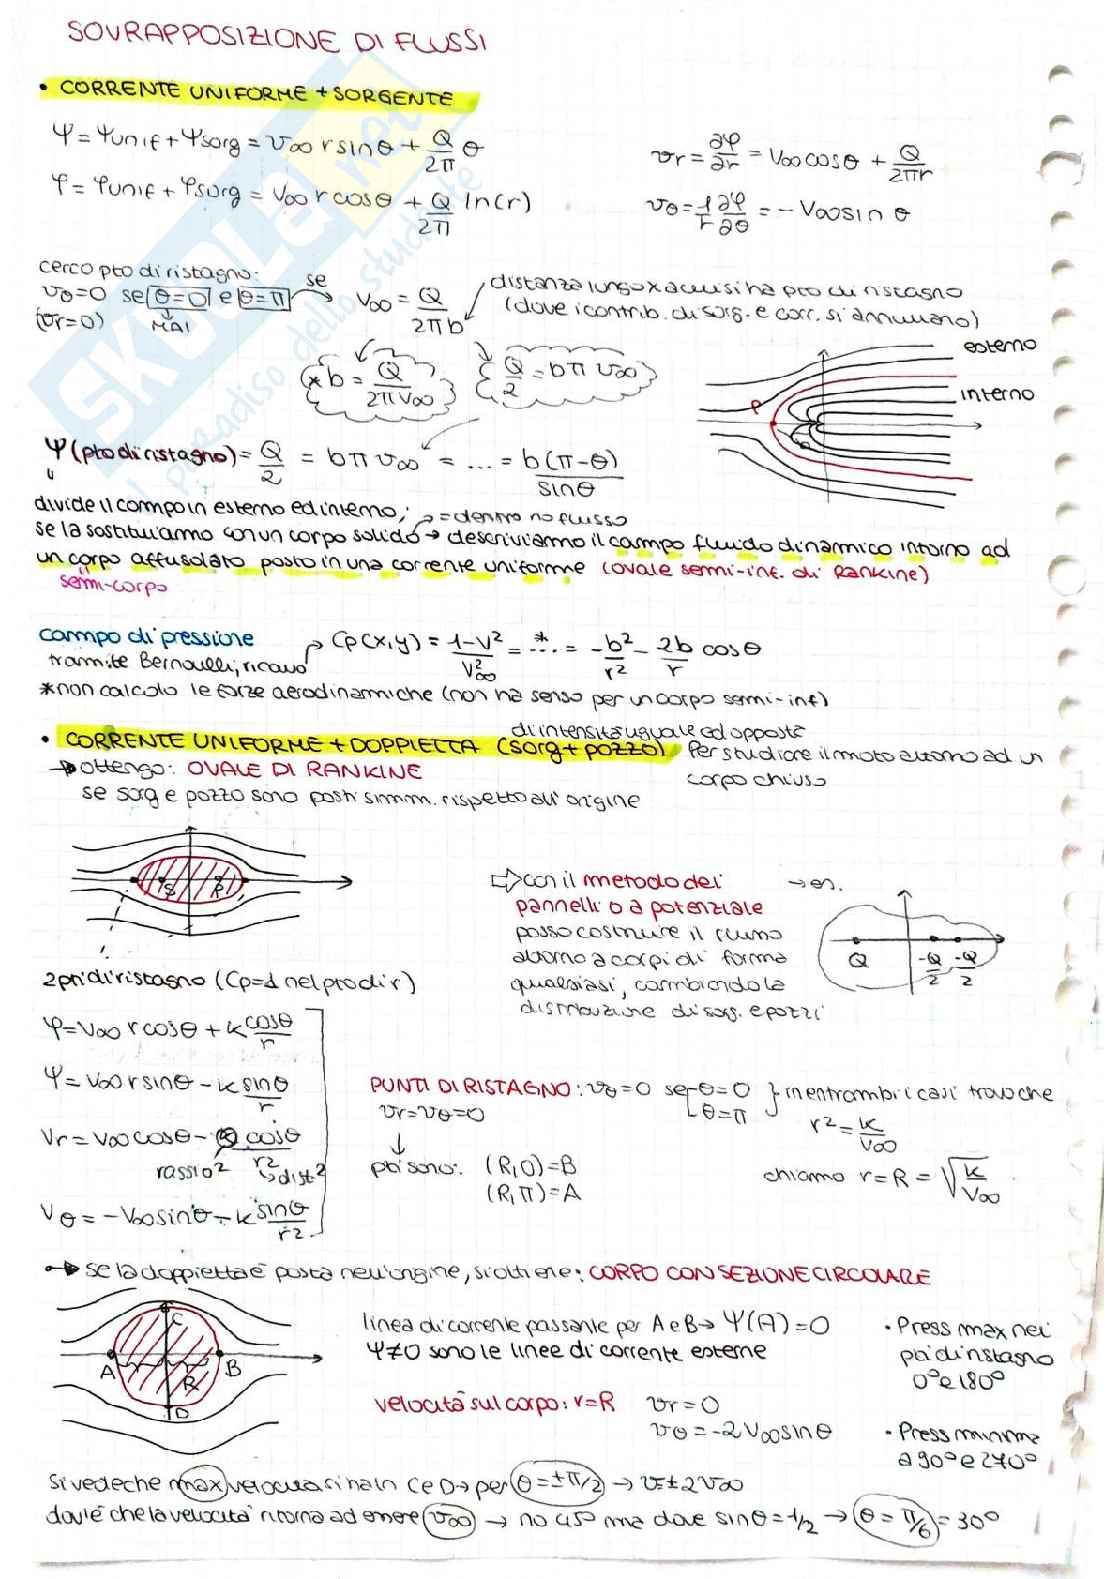 SOVRAPPOSIZIONE DI FLUSSI
• CORRENTE UNIFORME + SORGENTE
ψ = ψunif + ψsorg = v∞ r sinθ + Q/2π θ
φ = φunif + φsorg = v∞ r cosθ + Q/2π ln(r)
vr = ∂φ/∂r = V∞ cosθ + Q/2πr
vθ = 1/r ∂φ/∂θ = - V∞ sin θ
cerco pto di ristagno:
vθ=0 se θ=0 e θ=π se → v∞ = Q/2πb
(vr=0) MAI
distanza lungo x a cui si ha pto di ristagno
(dove i contrib. di sorg. e corr. si annullano)
* b = Q/2πV∞
Q/2 = bπ v∞
esterno
interno
P
ψ(pto di ristagno) = Q/2 = bπ v∞ = ... = b(π-θ)/sinθ
divide il campo in esterno ed interno;
= dentro no flusso
se la sostituiamo con un corpo solido → descriviamo il campo fluidodinamico intorno ad
un corpo affusolato posto in una corrente uniforme (ovale semi-inf. di Rankine)
semi-corpo
campo di pressione
tramite Bernoulli, ricavo
Cp(x,y) = 1-V²/V∞² = *... = -b²/r² - 2b/r cosθ
*non calcolo le forze aerodinamiche (non ha senso per un corpo semi-inf)
di intensità uguale ed opposta
• CORRENTE UNIFORME + DOPPIETTA (sorg + pozzo) Per studiare il moto attorno ad un
corpo chiuso
→ ottengo: OVALE DI RANKINE
se sorg e pozzo sono posti simm. rispetto all'origine
S P
⇨ con il metodo dei
pannelli o a potenziale
posso costruire il flusso
attorno a corpi di forma
qualsiasi, cambiando la
distribuzione di sorg. e pozzi
→ es.
Q -Q/2 -Q/2
2 pti di ristagno (Cp=1 nel pto di r)
φ = V∞ r cosθ + k cosθ/r
ψ = V∞ r sinθ - k sinθ/r
Vr = V∞ cosθ - cosθ/r²
raggio² dist²
Vθ = -V∞ sinθ - k sinθ/r²
PUNTI DI RISTAGNO: vθ=0 se θ=0 } in entrambi i casi trovo che
vr=vθ=0 θ=π r² = k/V∞
↓
pti sono: (R,0)=B
(R,π)=A
chiamo r=R=√k/V∞
→ se la doppietta è posta nell'origine, si ottiene: CORPO CON SEZIONE CIRCOLARE
C
A R B
D
linea di corrente passante per A e B → ψ(A)=0
ψ≠0 sono le linee di corrente esterne
velocità sul corpo: r=R vr=0
vθ=-2V∞ sinθ
• Press max nei
pti di ristagno
0° e 180°
• Press minima
a 90° e 270°
si vede che max velocità si ha in C e D → per θ=±π/2 → v=±2V∞
dov'è che la velocità ritorna ad essere v∞ → no 45° ma dove sinθ=1/2 → θ=π/6=30°
SKUOLA.net
il paradiso dello studente